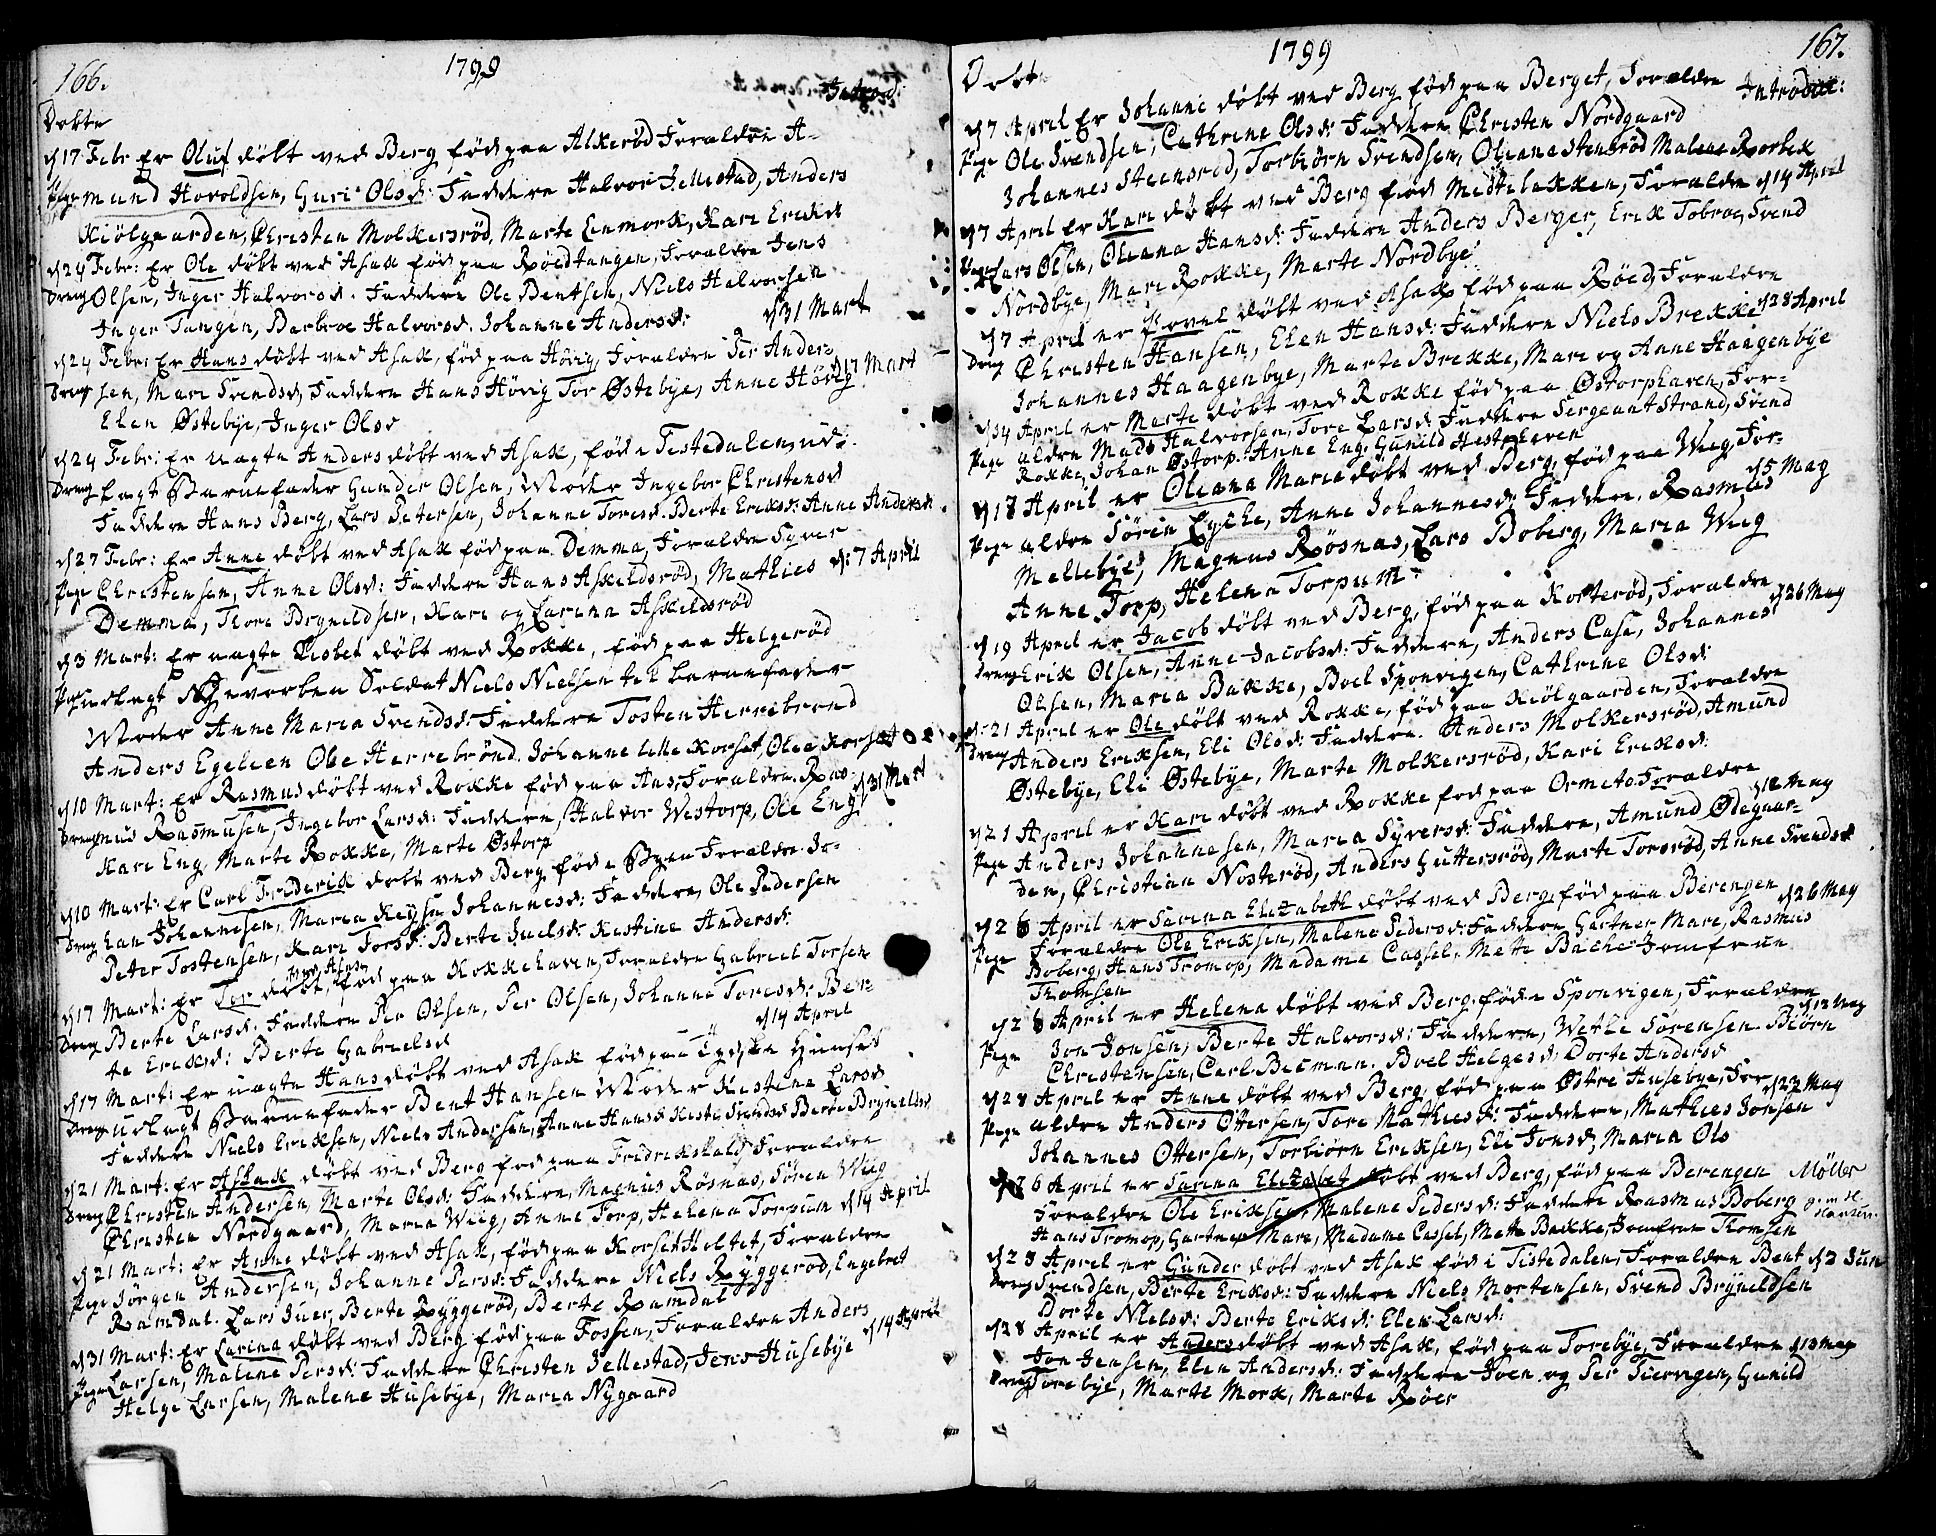 166.
1799
Introd:
Døbte
d 17 Febr Er Oluf døbt ved Berg, fød paa Alkerød Forældre A-
Pige mund Haroldsen, Guri Olsd: Faddere Halvor Jellestad, Anders
Kiølgaarden, Christen Molkersrød, Marte Lenmork, Kari Eriksd
d 24 Febr: Er Ole døbt ved Asak fød paa Røedtangen, Forældre Jens
Dreng Olsen, Inger Halvorsd. Faddere Ole Bentsen, Niels Halvorsen
Inger Tangen, Barbroe Halvorsd. Johanne Andersd: d 31 Mart
d 24 Febr: Er Hans døbt ved Asak, fød paa Hövig, Forældre Per Ander-
Dreng sen, Mari Svendsd, Faddere Hans Hövig Tor Østebye, Anne Hövig d 17 Mart
Elen Østebye, Inger Olsd
d 24 Febr: Er uægte Anders døbt ved Asak, fød i Testedalen, ud-
Dreng lagt Barnefader Gunder Olsen, Moder Ingebor Christensd
Faddere Hans Berg, Lars Petersen, Johanne Toresd. Berte Eriksd: Anne Andersd
d 27 Febr: Er Anne døbt ved Asak fød paa Demma, Forældre Syver
Pige Christensen, Anne Olsd: Faddere Hans Askeldsrød, Mathies d: 7 April
Demma, Thore Brynildsen, Kari og Carina Askildsrød
d 3 Mart: Er uægte Lisbet døbt ved Rokke, fød paa Helgerød
Pige udlagt Gevorben Soldat Niels Nielsen til barnefader
Moder Anne Maria Svendsd: Faddere Tosten Herrebrond
Anders Egelien Ole Herrebrönd. Johanne lille Korset, Olea Korset
d 10 Mart: Er Rasmus døbt ved Rokke fød paa Aas, Forældre Ras-
Dreng mus Rasmusen, Ingebor Larsd: Faddere, Halvor Westorp, Ole Eng d 31 Mart
Kari Eng, Marte Rokke, Marte Østorp
d 10 Mart: Er Carl Friderik døbt ved Berg fød i Byen Forældre Jo-
Dreng han Johannesen, Maria Keysa Johannesd: Faddere, Ole Pedersen
Peter Tostensen, Kari Torsd: Berte Juelsd: Kirstine Andersd:
ved Asak
d 17 Mart: Er Tor døbt, fød paa Kokkehaven, Forældre Gabriel Torsen
Dreng Berte Larsd: Faddere Per Olsen, Per Olsen, Johanne Toresd: Ber-
te Eriksd: Berte Gabrielsd d 14 April
d 17 Mart: Er uægte Hans døbt ved Asak fød paa Hunset
Dreng udlagt Barnefader Bent Hansen Moder Kirstine Larsd
Faddere Niels Eriksen, Niels Andersen, Anne Hansd: Kirsti Svendsd Berte Brynildsd
d 21 Mart: Er Aslak døbt ved Berg fød paa Fridrikshald, Forældre
Dreng Christen Andersen, Marte Olsd: Faddere, Magnus Røsnæs, Søren Wiig
Christen Nordgaard, Maria Wiig, Anne Torp, Helena Torpum d 14 April
d 21 Mart: Er Anne døbt ved Asak, fød paa Korset Holtet, Forældre
Pige Jørgen Andersen, Johanne Persd: Faddere Niels Ryggerød, Engebret
Ramdal. Lars Juer, Berte Ryggerød, Berte Ramdal
d 31 Mart: Er Carina døbt ved Berg fød paa Fossen, Forældre Anders
Pige Larsen, Malene Persd: Faddere Christen Jellestad, Jens Husebye d 14 April
Helge Larsen, Malene Husebye, Maria Nygaard
167.
1799
Døbte
Introduc:
d 7 April Er Johanne døbt ved Berg fød paa Berget, Forældre
Pige Ole Svendsen, Cathrine Olsd: Faddere Christen Nordgaard
Johannes Steensrød, Torbiörn Svendsen, Oleana Stensrød Malene Rorbek
d 7 April er Kari døbt ved Berg fød Medtelokken, Forældre d 14 April
Pige Lars Olsen, Oleana Hansd: Faddere Anders Berger, Erik Tobroe, Svend
Nordbye, Mari Rokke, Marte Nordbye
d 7 April er døbt ved Asak fød paa Røed, Forældre
Dreng Christen Hansen, Elen Hansd: Faddere Niels Brekke d 28 April
Johannes Haagenbye, Marte Brekke, Mari og Anne Haagenbye
d 14 April er Marte døbt ved Rokke fød paa Østorphaven, For-
Pige ældre Mads Halvorsen, Tore Larsd: Faddere Sergeant Strand, Svend
Rokke, Johan Østorp. Anne Eng, Gunild Hestehaven
d 18 April er Oleana Maria døbt ved Berg, fød paa Wiig For-
Pige ældre Søren Lyche, Anne Johannesd: Faddere. Rasmus d 5 May
Mellebye, Magnus Røsnæs, Lars Boberg, Maria Wiig
Anne Torp, Helena Torpum
d 19 April er Jacob døbt ved Berg, fød paa Korterød, Forældre d 26 May
Dreng Erik Olsen, Anne Jacobsd: Faddere, Anders Case, Johannes
Olsen, Maria Bakke, Boel Sponvigen, Cathrine Olsd:
d: 21 April er Ole døbt ved Rokke, fød paa Kiølgaarden, Forældre
Dreng Anders Eriksen, Eli Olsd: Faddere. Anders Molkersrød, Amund
Østebye, Eli Østebye, Marte Molkersrød, Kari Eriksd:
d 21 April er Kari døbt ved Rokke fød paa Ormeto Forældre d 12 May
Pige Anders Johannesen, Maria Syversd: Faddere, Amund Ødegaar-
den, Christian Nosterød, Anders Guttersrød, Marte Torsrød, Anne Svendsd
d 26 April er Sarina Elizabeth døbt ved Berg, fød paa Berengen d 26 May
Pige Forældre Ole Eriksen, Malene Pedersd: Faddere Gartner Mare, Rasmus
Boberg, Hans Tromop, Madame Cassel, Mette Bache Jomfrue
Thomsen
d 26 April er Helena døbt ved Berg, fød i Sponvigen, Forældre d 12 May
Pige Jon Jonsen, Berte Halvorsd: Faddere, Wetle Sørensen. Biørn
Christensen, Carl Beeman. Boel Helgesd: Dorte Andersd
d 28 April er Anne døbt ved Berg, fød paa Østre Husebye, For- d 22 May
Pige ældre Anders Ottersen, Tore Mathiesd: Faddere, Mathies Jonsen
Johannes Ottersen, Torbiørn Eriksen, Eli Jonsd, Maria Ols
d 26 April er Sarina Elizabet døbt ved Berg, fød paa Berengen Møller
Forældre Ole Eriksen, Malene Pedersd: Faddere Rasmus Boberg
Hans Tromop, Gartner Mare, Madame Cassel, Mette Bakke, Jomfrue Thomsen
d 28 April er Gunder døbt ved Asak fød i Tistedalen, Forældre Bent d 2 Juni
Dreng Svendsen, Berte Eriksd: Faddere Niels Mortensen, Svend Brynildsen
Dorte Nielsd: Berte Eriksd: Elen Larsd:
d 28 April er Anders døbt ved Asak, fød paa Torebye, Forældre d 13 May
Jon Jensen, Elen Andersd: Faddere Joen og Per Tiervigen, Gunild
Dreng Torebye, Marte Mork, Marte Røer